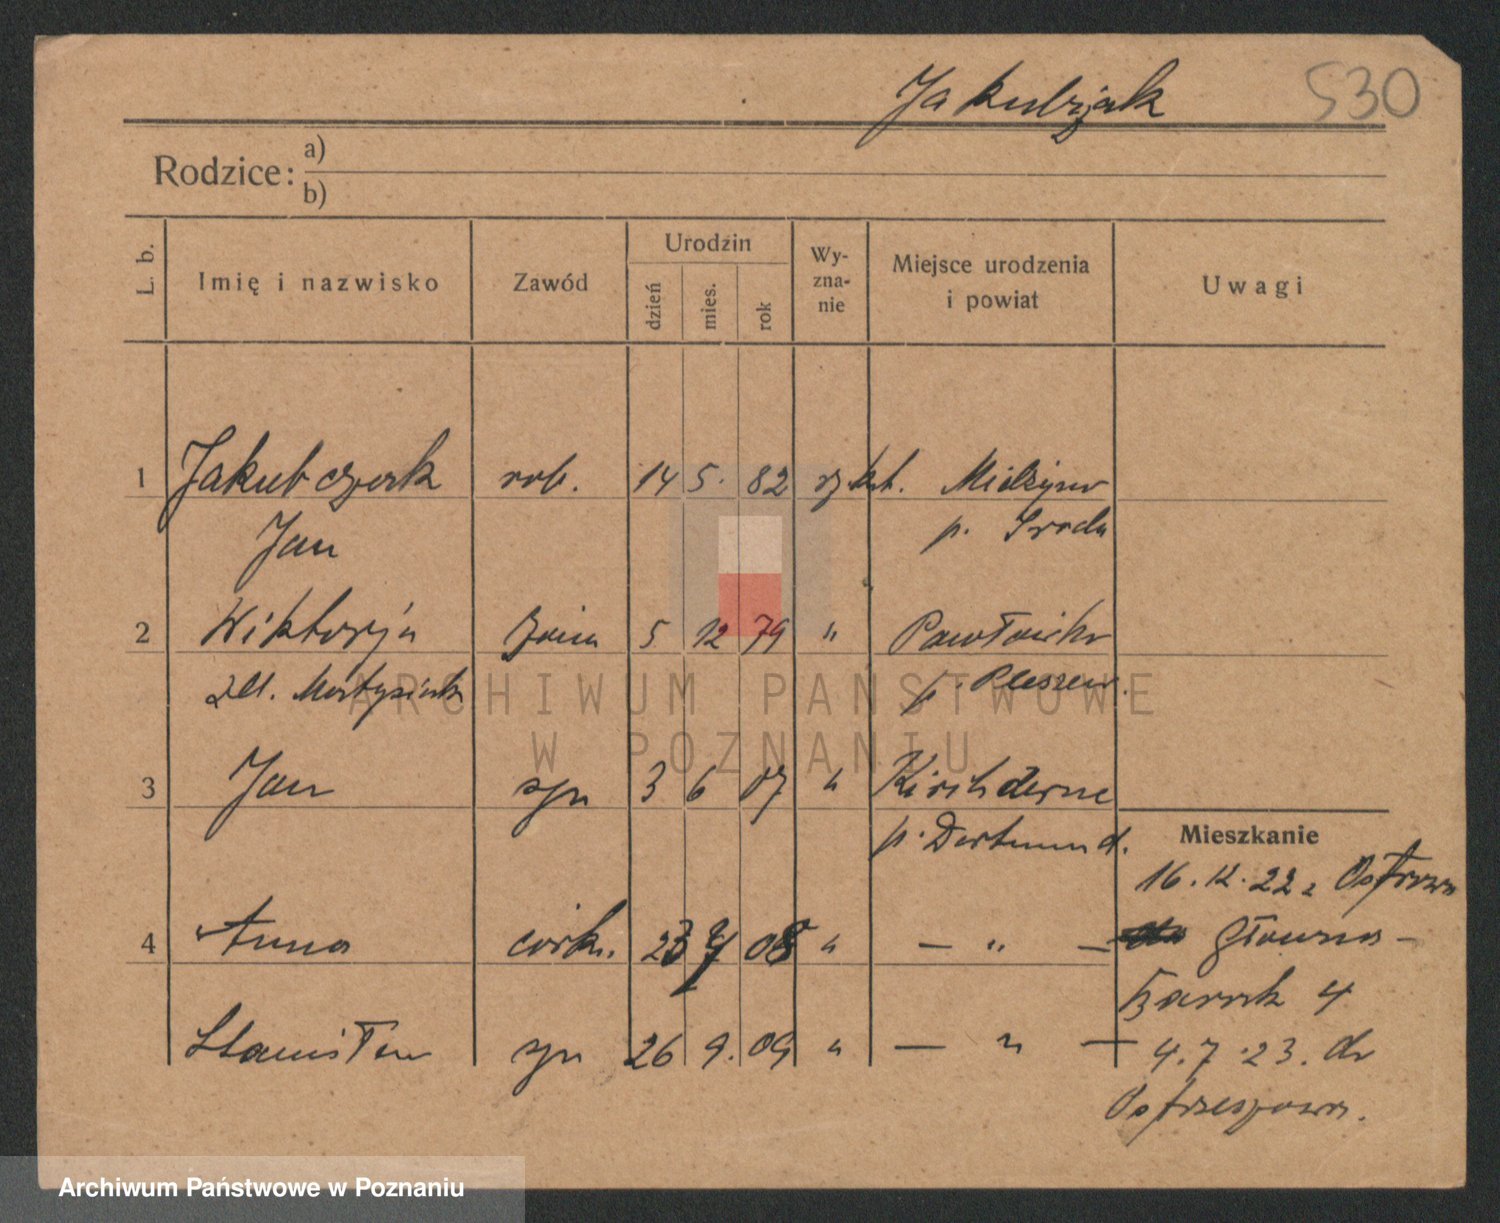 Jakubczak 530
Rodzice: a)
b)
L. b. Imię i nazwisko Zawód Urodzin dzień mies. rok Wy-zna-nie Miejsce urodzenia i powiat Uwagi
1 Jakubczak rob. 14 5. 82 rz kat.
Jan p. Sroda
2 Wiktorja żona 5 12 79 "
p. Pleszew.
3 Jan syn 3 6 07 " Kirchderne
p. Dortmund. Mieszkanie
16. 12. 22 z
4 Anna córka. 23 7 08 " — " — Główna -
Barak 4
Stanisław syn 26 9. 09 " — " — 4. 7. 23. do
Ostrzeszowa.
ARCHIWUM PAŃSTWOWE
W POZNANIU
Archiwum Państwowe w Poznaniu